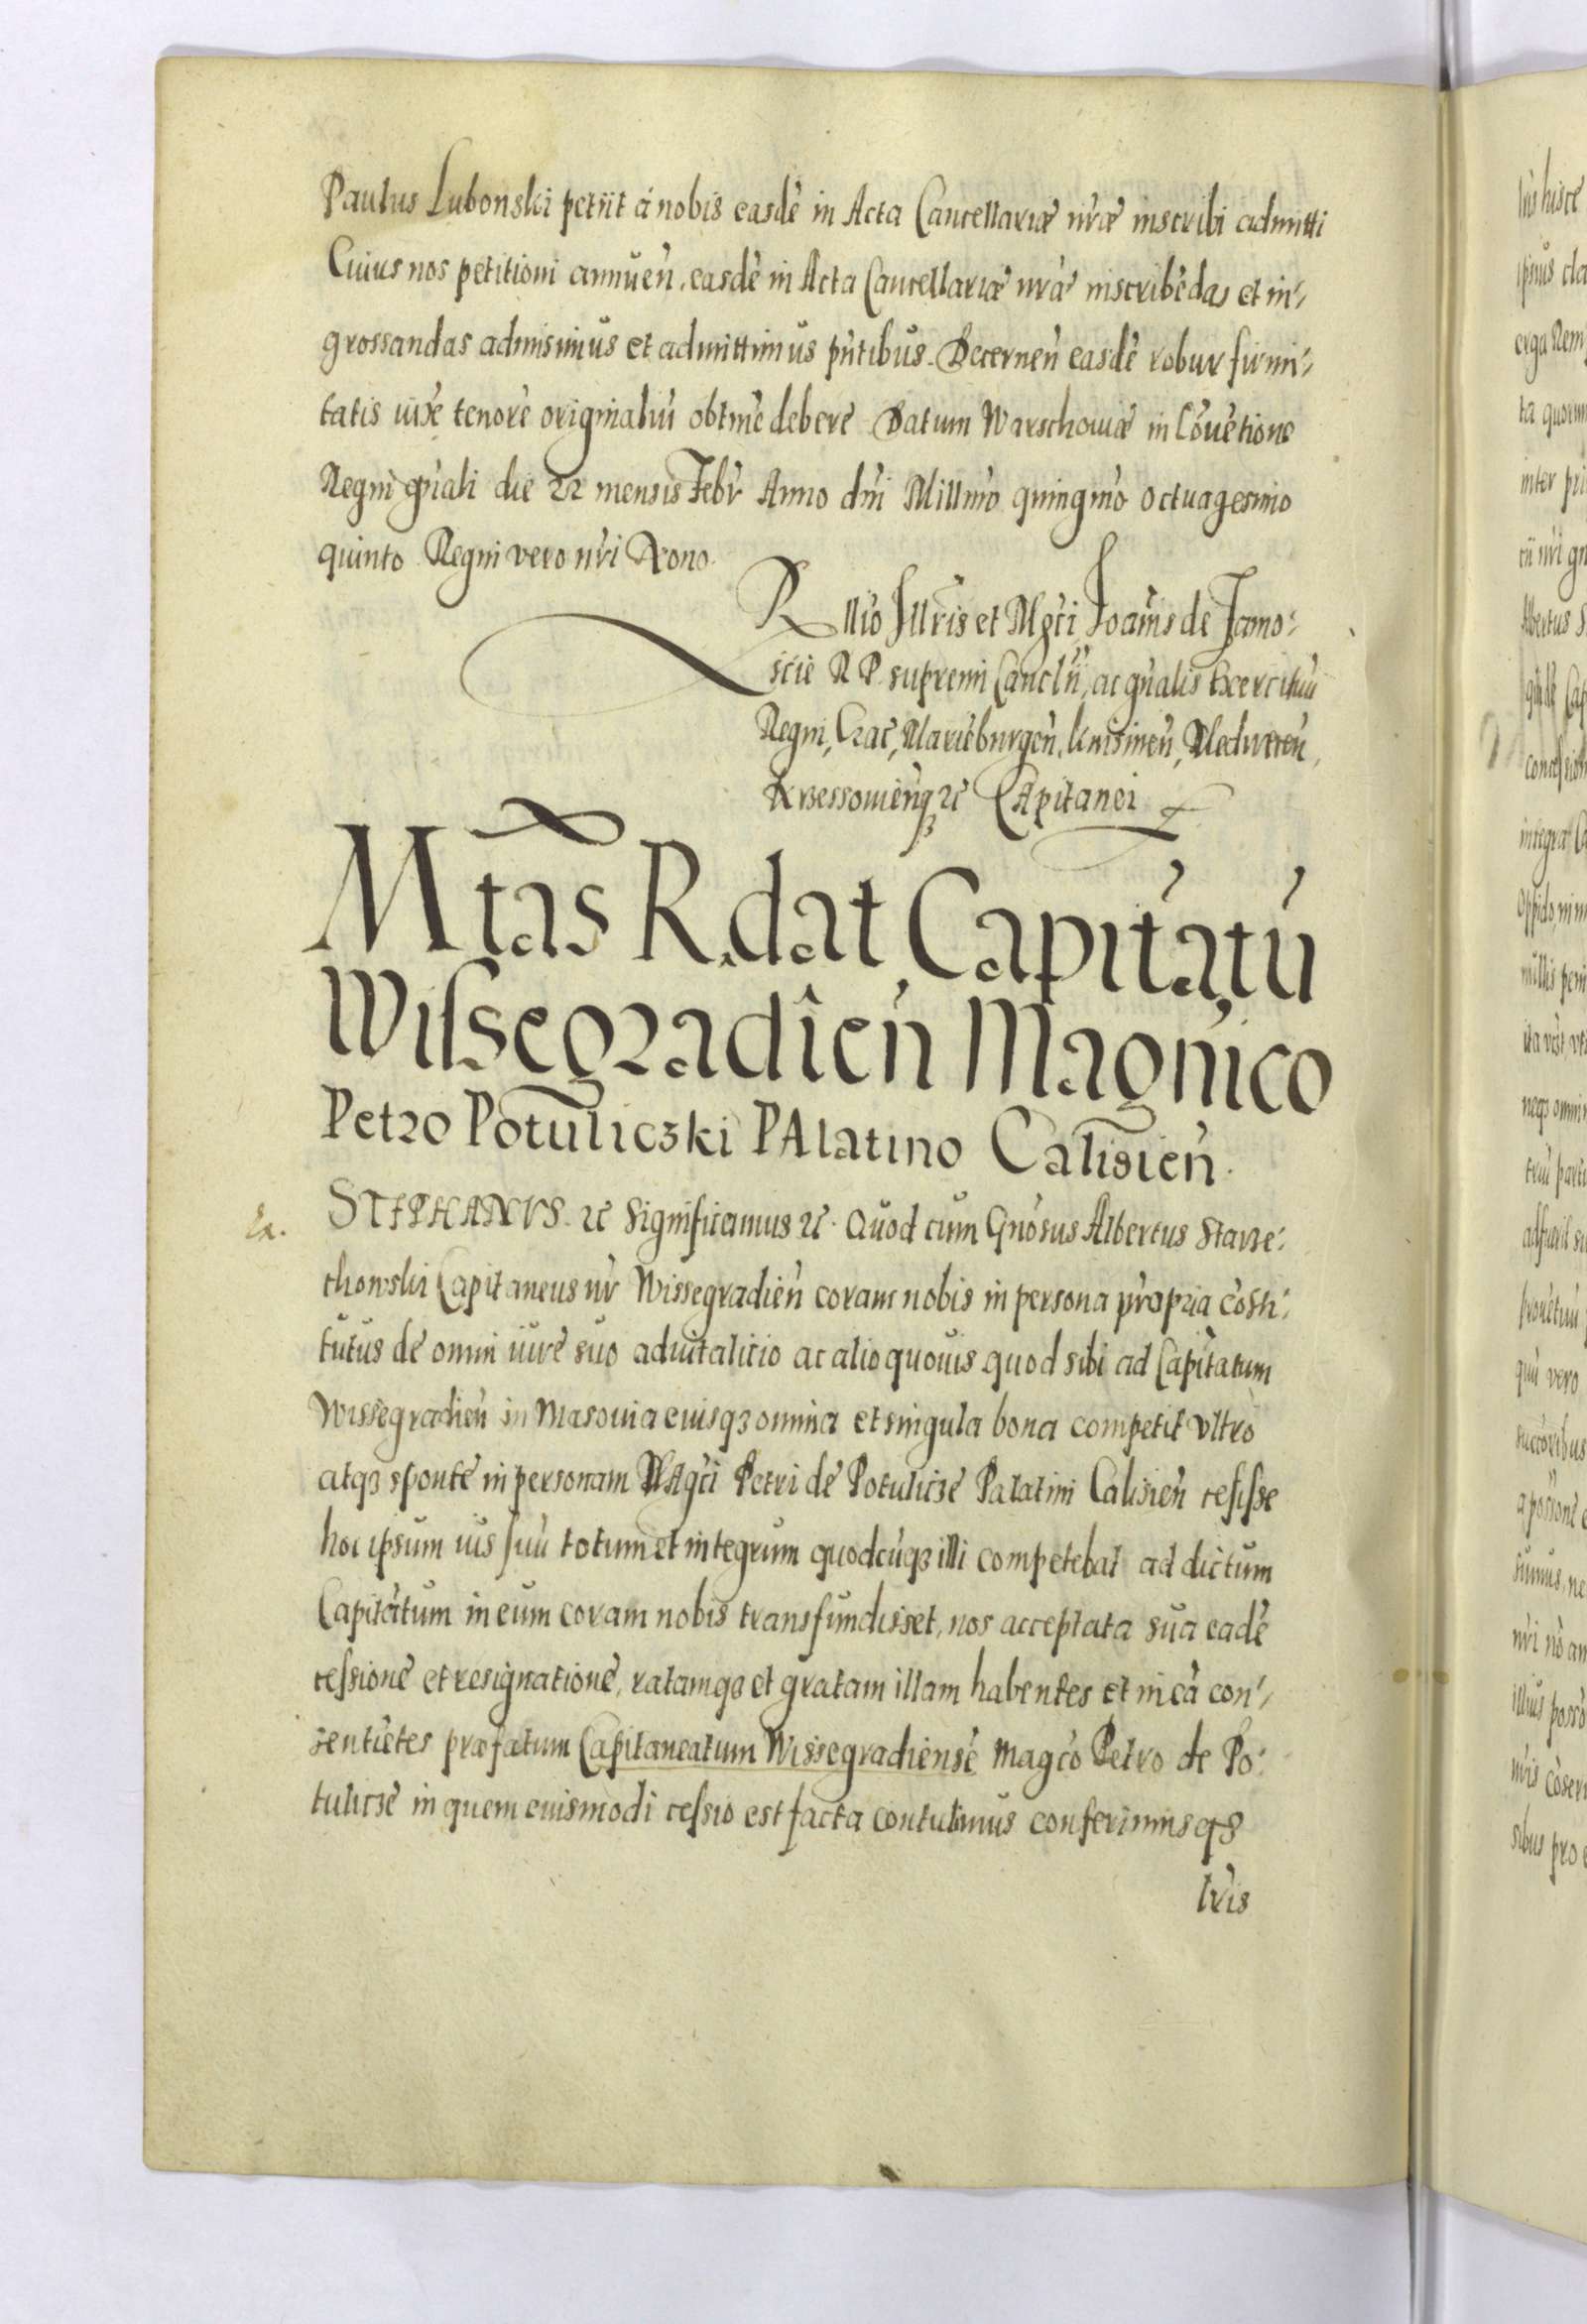 Paulus Lubonski petiit á nobis easdē in Acta Cancellariæ nr̄æ inscribi admitti
Cuius nos petitioni annuen̄, easdē in Acta Cancellariæ nr̄æ inscribēdas et in,
grossandas admisimus et admittimus pn̄tibus. Decernen̄ easdē robur firmi,
tatis iuxe tenorē originaliū obtinē deberē Datum Warschouiæ in Cōuētione
Regni gn̄ali die 22 mensis Febr̄ Anno dn̄i Millm̄o quingm̄o octuagesimo
quinto Regni vero nr̄i Nono.
Rllīo Illr̄is et Mgc̄i Joan̄is de Zamo:
sciē R P supremi Cancln̄ij, ac gn̄alis Exercituū
Regni, Crac̄, Mariēburgen̄, Knisinen̄, Medireren̄,
Kressouien̄q3 &c̄ Capitanei
Mtas R. dat Capitatū
Wissegradien̄ Magnico
Petro Potuliczki PAlatino Calisien̄.
Ex. STEPHANVS. &c̄ Significamus &c̄. Quod cum Gn̄osus Albertus Starze:
chowski Capitaneus nr̄ Wissegradien̄ coram nobis in persona propria cōsti:
tutus de omni iure suo aduitalitio ac alio quouis quod sibi ad Capitatum
Wissegradien̄ in Masouia eiusq3 omnia et singula bona competit vltro
atq3 sponte in personam MAgc̄i Petri de Potulicze Palatini Calisien̄ cessisse
hoc ipsum ius suū totum et integrum quodcūq3 illi competebat ad dictum
Capitātum in eum coram nobis transfundisset, nos acceptata sua eadē
cessionē et resignationē, ratamq3 et gratam illam habentes et in eā con,
sentiētes præfatum Capitaneatum Wissegradiensē Magc̄o Petro de Po:
tulicze in quem euismodi cessio est facta contulimus conferimusq3
lr̄is